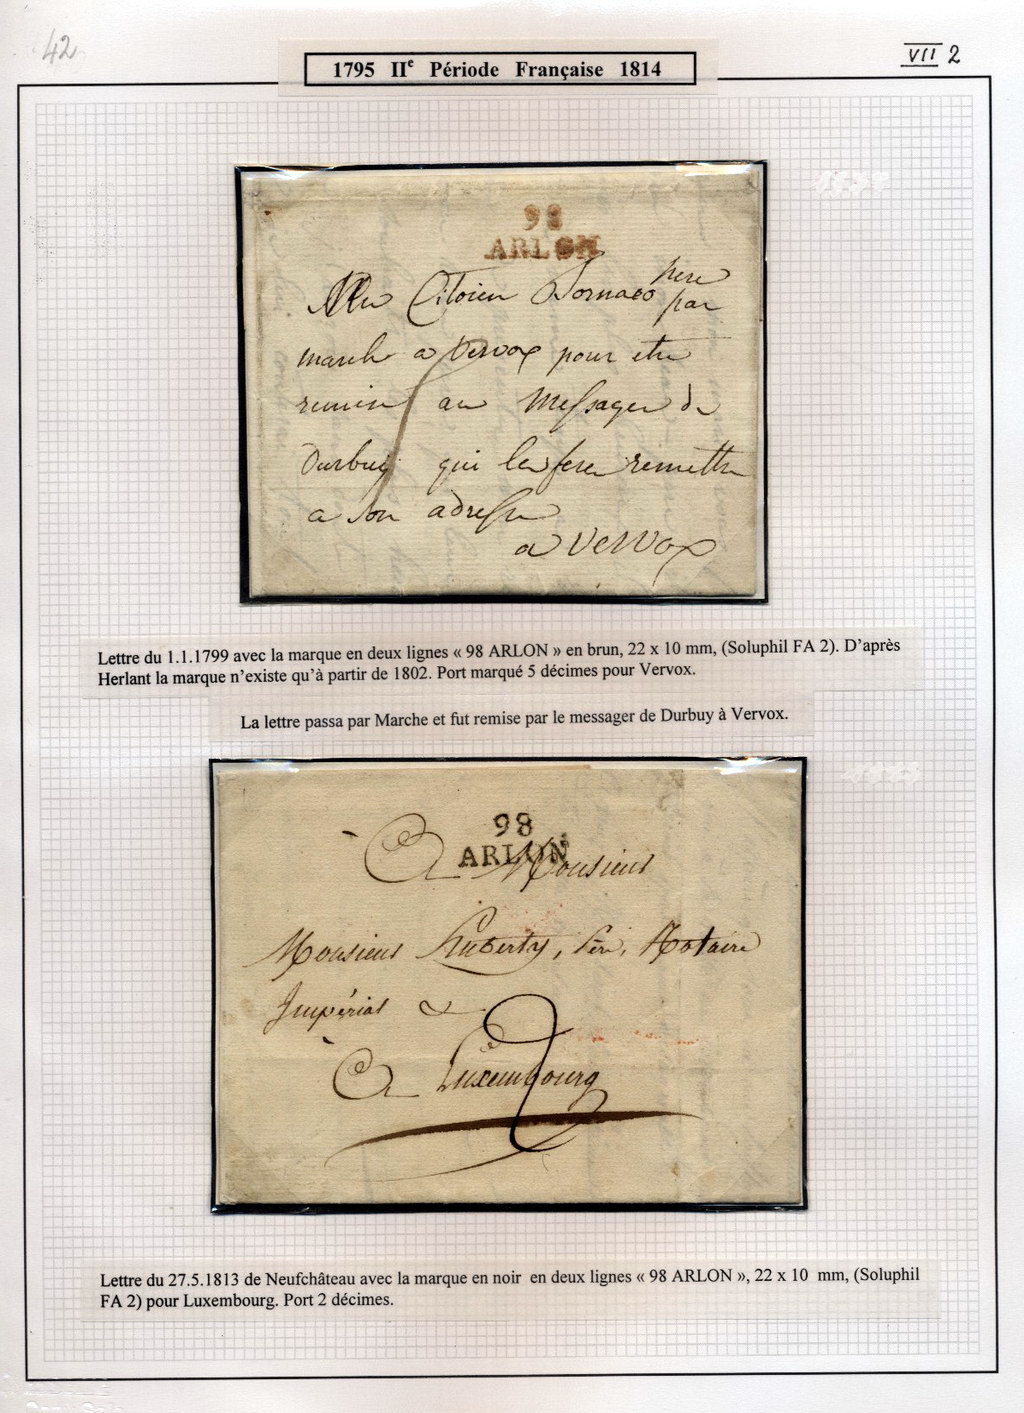 42
VII 2
1795 IIe Période Française 1814
98
ARLON
Au Citoien Dornaco pere
par
marche a Vervox pour etre
remis au Messager de
Durbuy qui le fera remettre
a son adresse
a Vervox
Lettre du 1.1.1799 avec la marque en deux lignes « 98 ARLON » en brun, 22 x 10 mm, (Soluphil FA 2). D’après
Herlant la marque n’existe qu’à partir de 1802. Port marqué 5 décimes pour Vervox.
La lettre passa par Marche et fut remise par le messager de Durbuy à Vervox.
98
ARLON
A Monsieur
Monsieur Huberty, Père, Notaire
Impérial &
2
A Luxembourg
Lettre du 27.5.1813 de Neufchâteau avec la marque en noir en deux lignes « 98 ARLON », 22 x 10 mm, (Soluphil
FA 2) pour Luxembourg. Port 2 décimes.